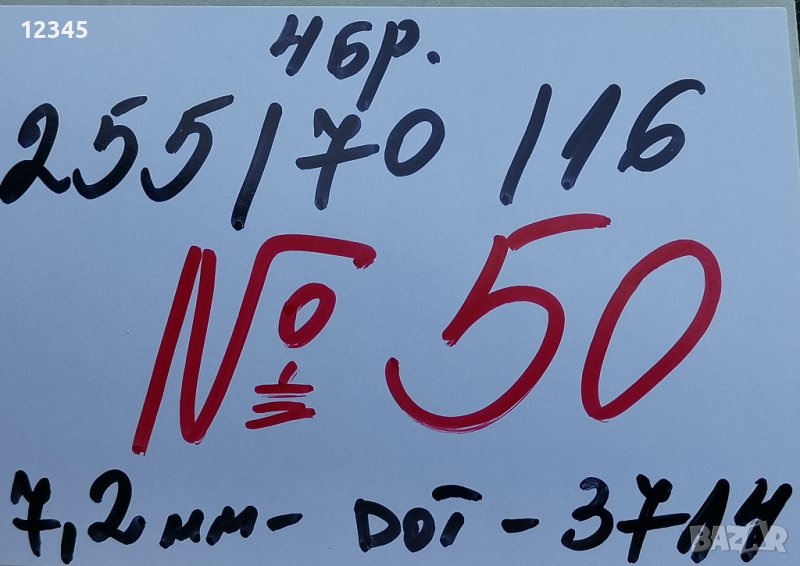 12345
4 бр.
255/70/16
№ 50
7,2мм- DOT - 3714
BAZAR